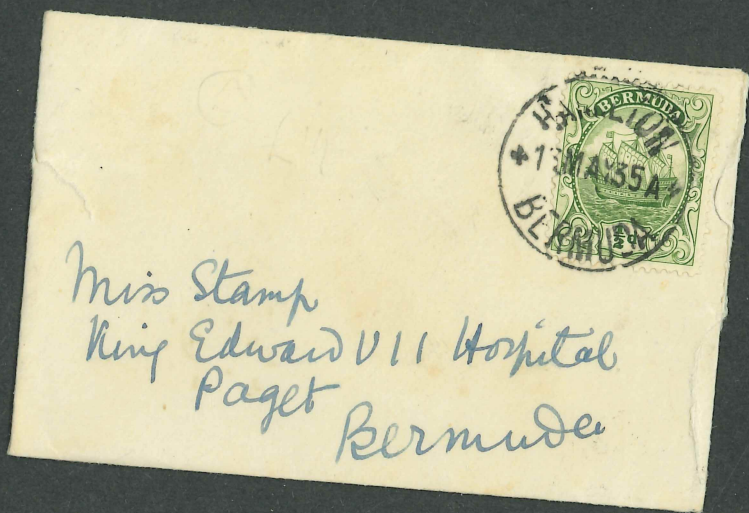 BERMUDA
HAMILTON
MAY 35 A
BERMUDA
Miss Stamp
King Edward VII Hospital
Paget
Bermuda